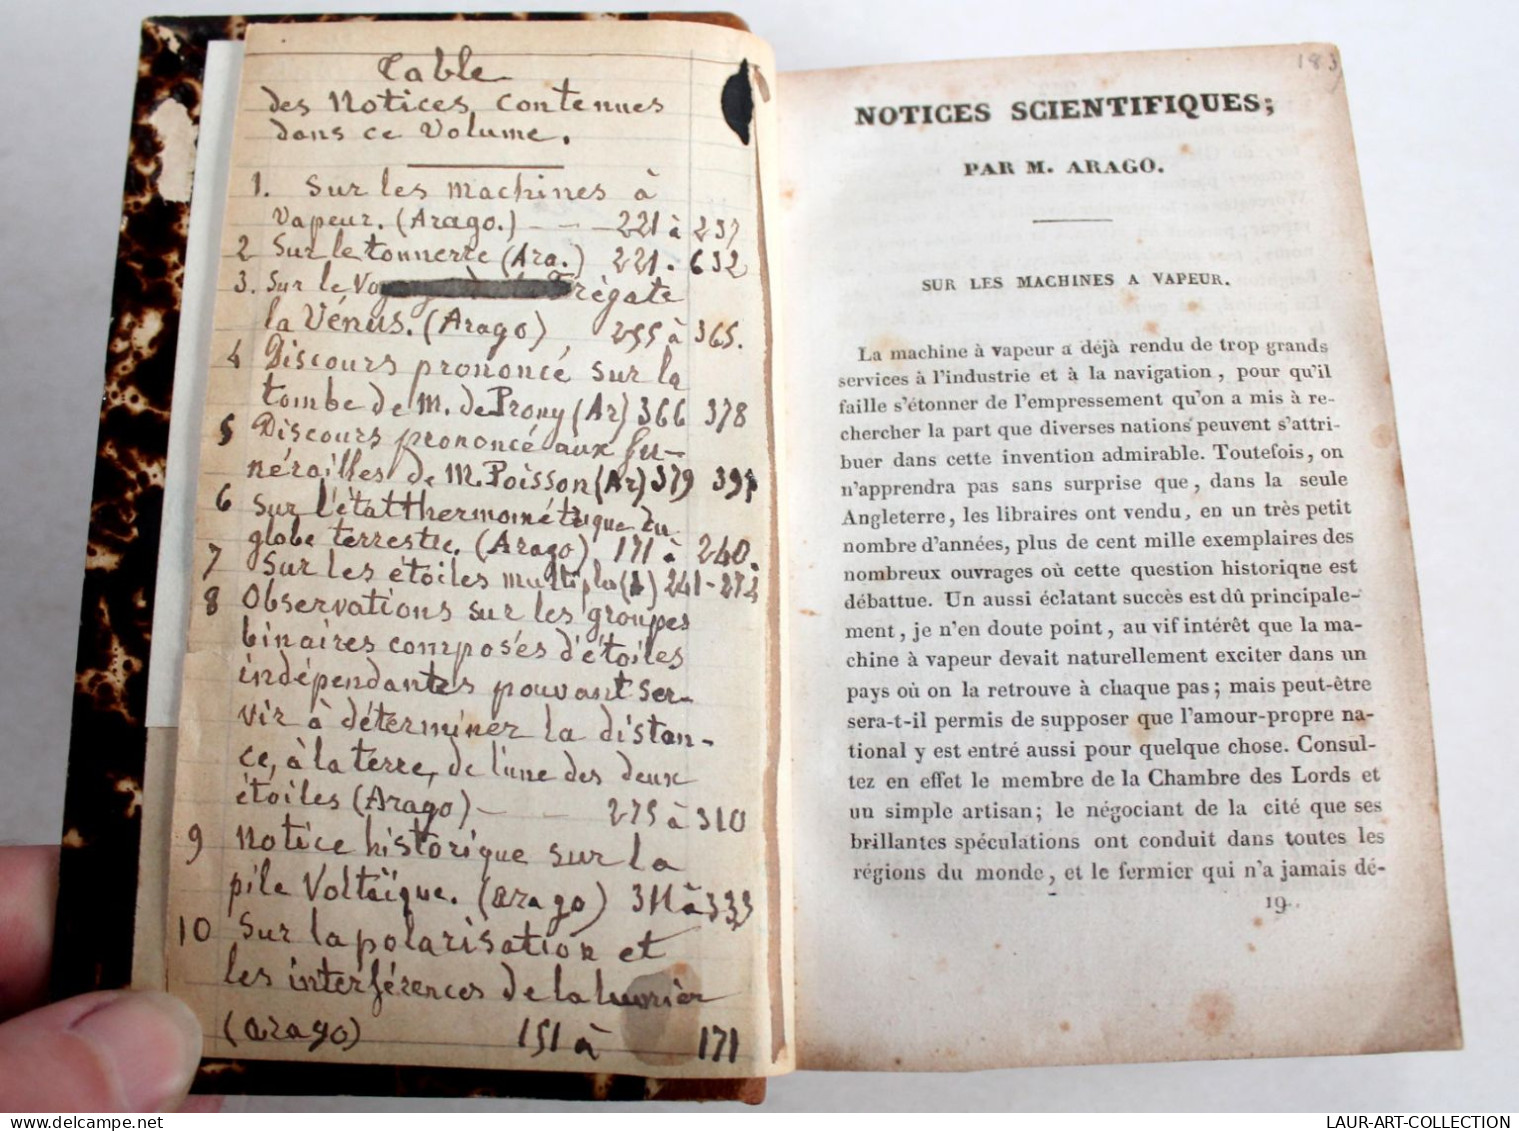 Table
des Notices contenues
dans ce Volume.
1. Sur les machines à
Vapeur. (Arago.) — — — 221 à 237
2 Sur le tonnerre (Ara.) 221. 632
3. Sur le Frégate
la Vénus. (Arago), 255 à 365.
4 Discours prononcé sur la
tombe de M. de Prony (Ar) 366 378
5 Discours prononcé aux fu-
nérailles de M. Poisson (Ar) 379
6 Sur l'état thermométrique du
globe terrestre. (Arago) 171 à 240.
7 Sur les étoiles multiples (A) 241-274
8 Observations sur les groupes
binaires composés d'étoiles
indépendantes pouvant ser-
vir à déterminer la distan-
ce, à la terre, de l'une des deux
étoiles (Arago) — — 275 à 310
9 Notice historique sur la
pile Voltaïque. (Arago) 311 à 333
10 Sur la polarisation et
les interférences de la lumière
(Arago) 151 à 171
183
NOTICES SCIENTIFIQUES;
PAR M. ARAGO.
SUR LES MACHINES A VAPEUR.
La machine à vapeur a déjà rendu de trop grands
services à l'industrie et à la navigation, pour qu'il
faille s'étonner de l'empressement qu'on a mis à re-
chercher la part que diverses nations peuvent s'attri-
buer dans cette invention admirable. Toutefois, on
n'apprendra pas sans surprise que, dans la seule
Angleterre, les libraires ont vendu, en un très petit
nombre d'années, plus de cent mille exemplaires des
nombreux ouvrages où cette question historique est
débattue. Un aussi éclatant succès est dû principale-
ment, je n'en doute point, au vif intérêt que la ma-
chine à vapeur devait naturellement exciter dans un
pays où on la retrouve à chaque pas; mais peut-être
sera-t-il permis de supposer que l'amour-propre na-
tional y est entré aussi pour quelque chose. Consul-
tez en effet le membre de la Chambre des Lords et
un simple artisan; le négociant de la cité que ses
brillantes spéculations ont conduit dans toutes les
régions du monde, et le fermier qui n'a jamais dé-
19..
LAUR-ART-COLLECTION